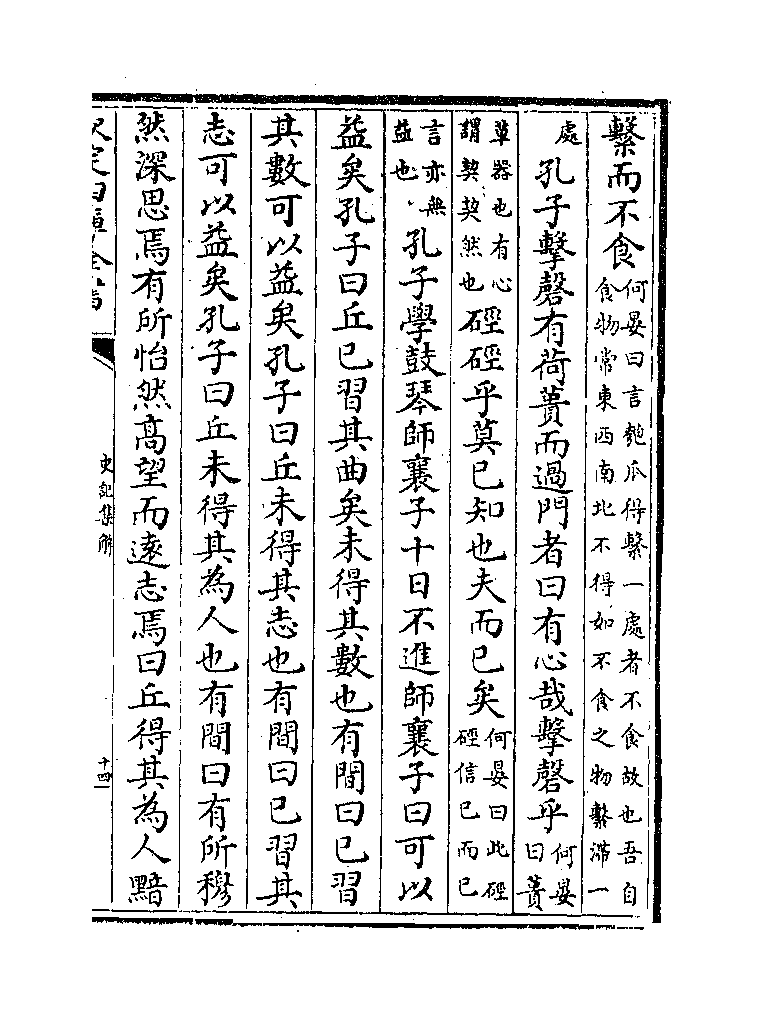 繫而不食何晏曰言匏瓜得繫一處者不食故也吾自食物當東西南北不得如不食之物繫滯一
處孔子擊磬有荷蕢而過門者曰有心哉擊磬乎何晏曰蕢
草器也有心謂契契然也硜硜乎莫已知也夫而已矣何晏曰此硜硜信已而已
言亦無益也孔子學鼓琴師襄子十日不進師襄子曰可以
益矣孔子曰丘已習其曲矣未得其數也有間曰已習
其數可以益矣孔子曰丘未得其志也有間曰已習其
志可以益矣孔子曰丘未得其為人也有間曰有所穆
然深思焉有所怡然高望而遠志焉曰丘得其為人黯
欽定四庫全書
史記集解
十四